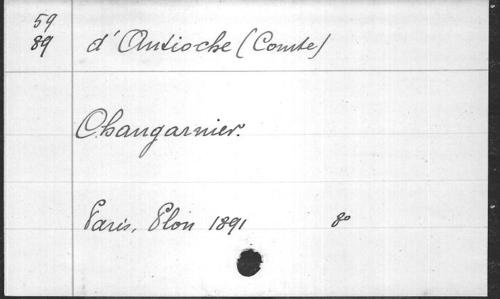 59
89 d'Antioche (Comte)
Changarnier.
Paris, Plon 1891 8º